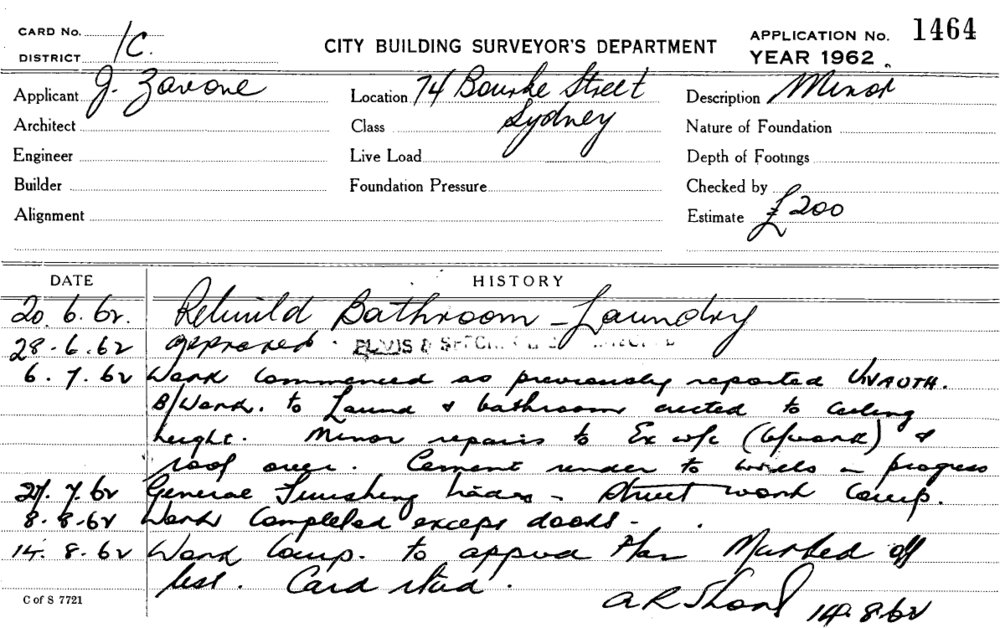 CARD No.
DISTRICT 1C.
CITY BUILDING SURVEYOR'S DEPARTMENT
APPLICATION No. 1464
YEAR 1962
Applicant J. Zavone
Location 74 Bourke Street
Sydney
Description Minor
Architect
Class
Nature of Foundation
Engineer
Live Load
Depth of Footings
Builder
Foundation Pressure
Checked by
Alignment
Estimate £200
DATE HISTORY
20.6.62. Rebuild Bathroom - Laundry
28.6.62 approved. PLANS &
6.7.62 Work commenced as previously reported UNAUTH.
B/Work. to Laund & bathroom erected to ceiling
height. Minor repairs to Ex w/c (b/work) &
roof over. Cement render to walls in progress
27.7.62 General Finishing trades - Struct work comp.
8.8.62 Work completed except doors -
14.8.62 Work comp. to approved Plan Marked off
list. Card
C of S 7721
14.8.62